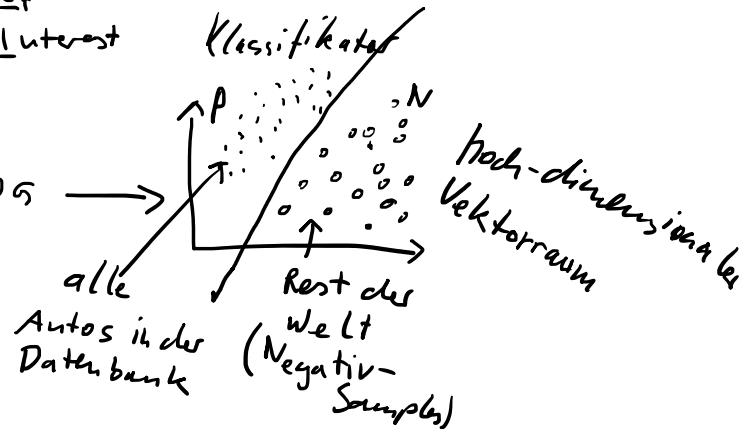 Interest
Klassifikator
P
N
hoch-dimensionaler
Vektorraum
alle
Autos in der
Datenbank
Rest der
Welt
(Negativ-
Samples)